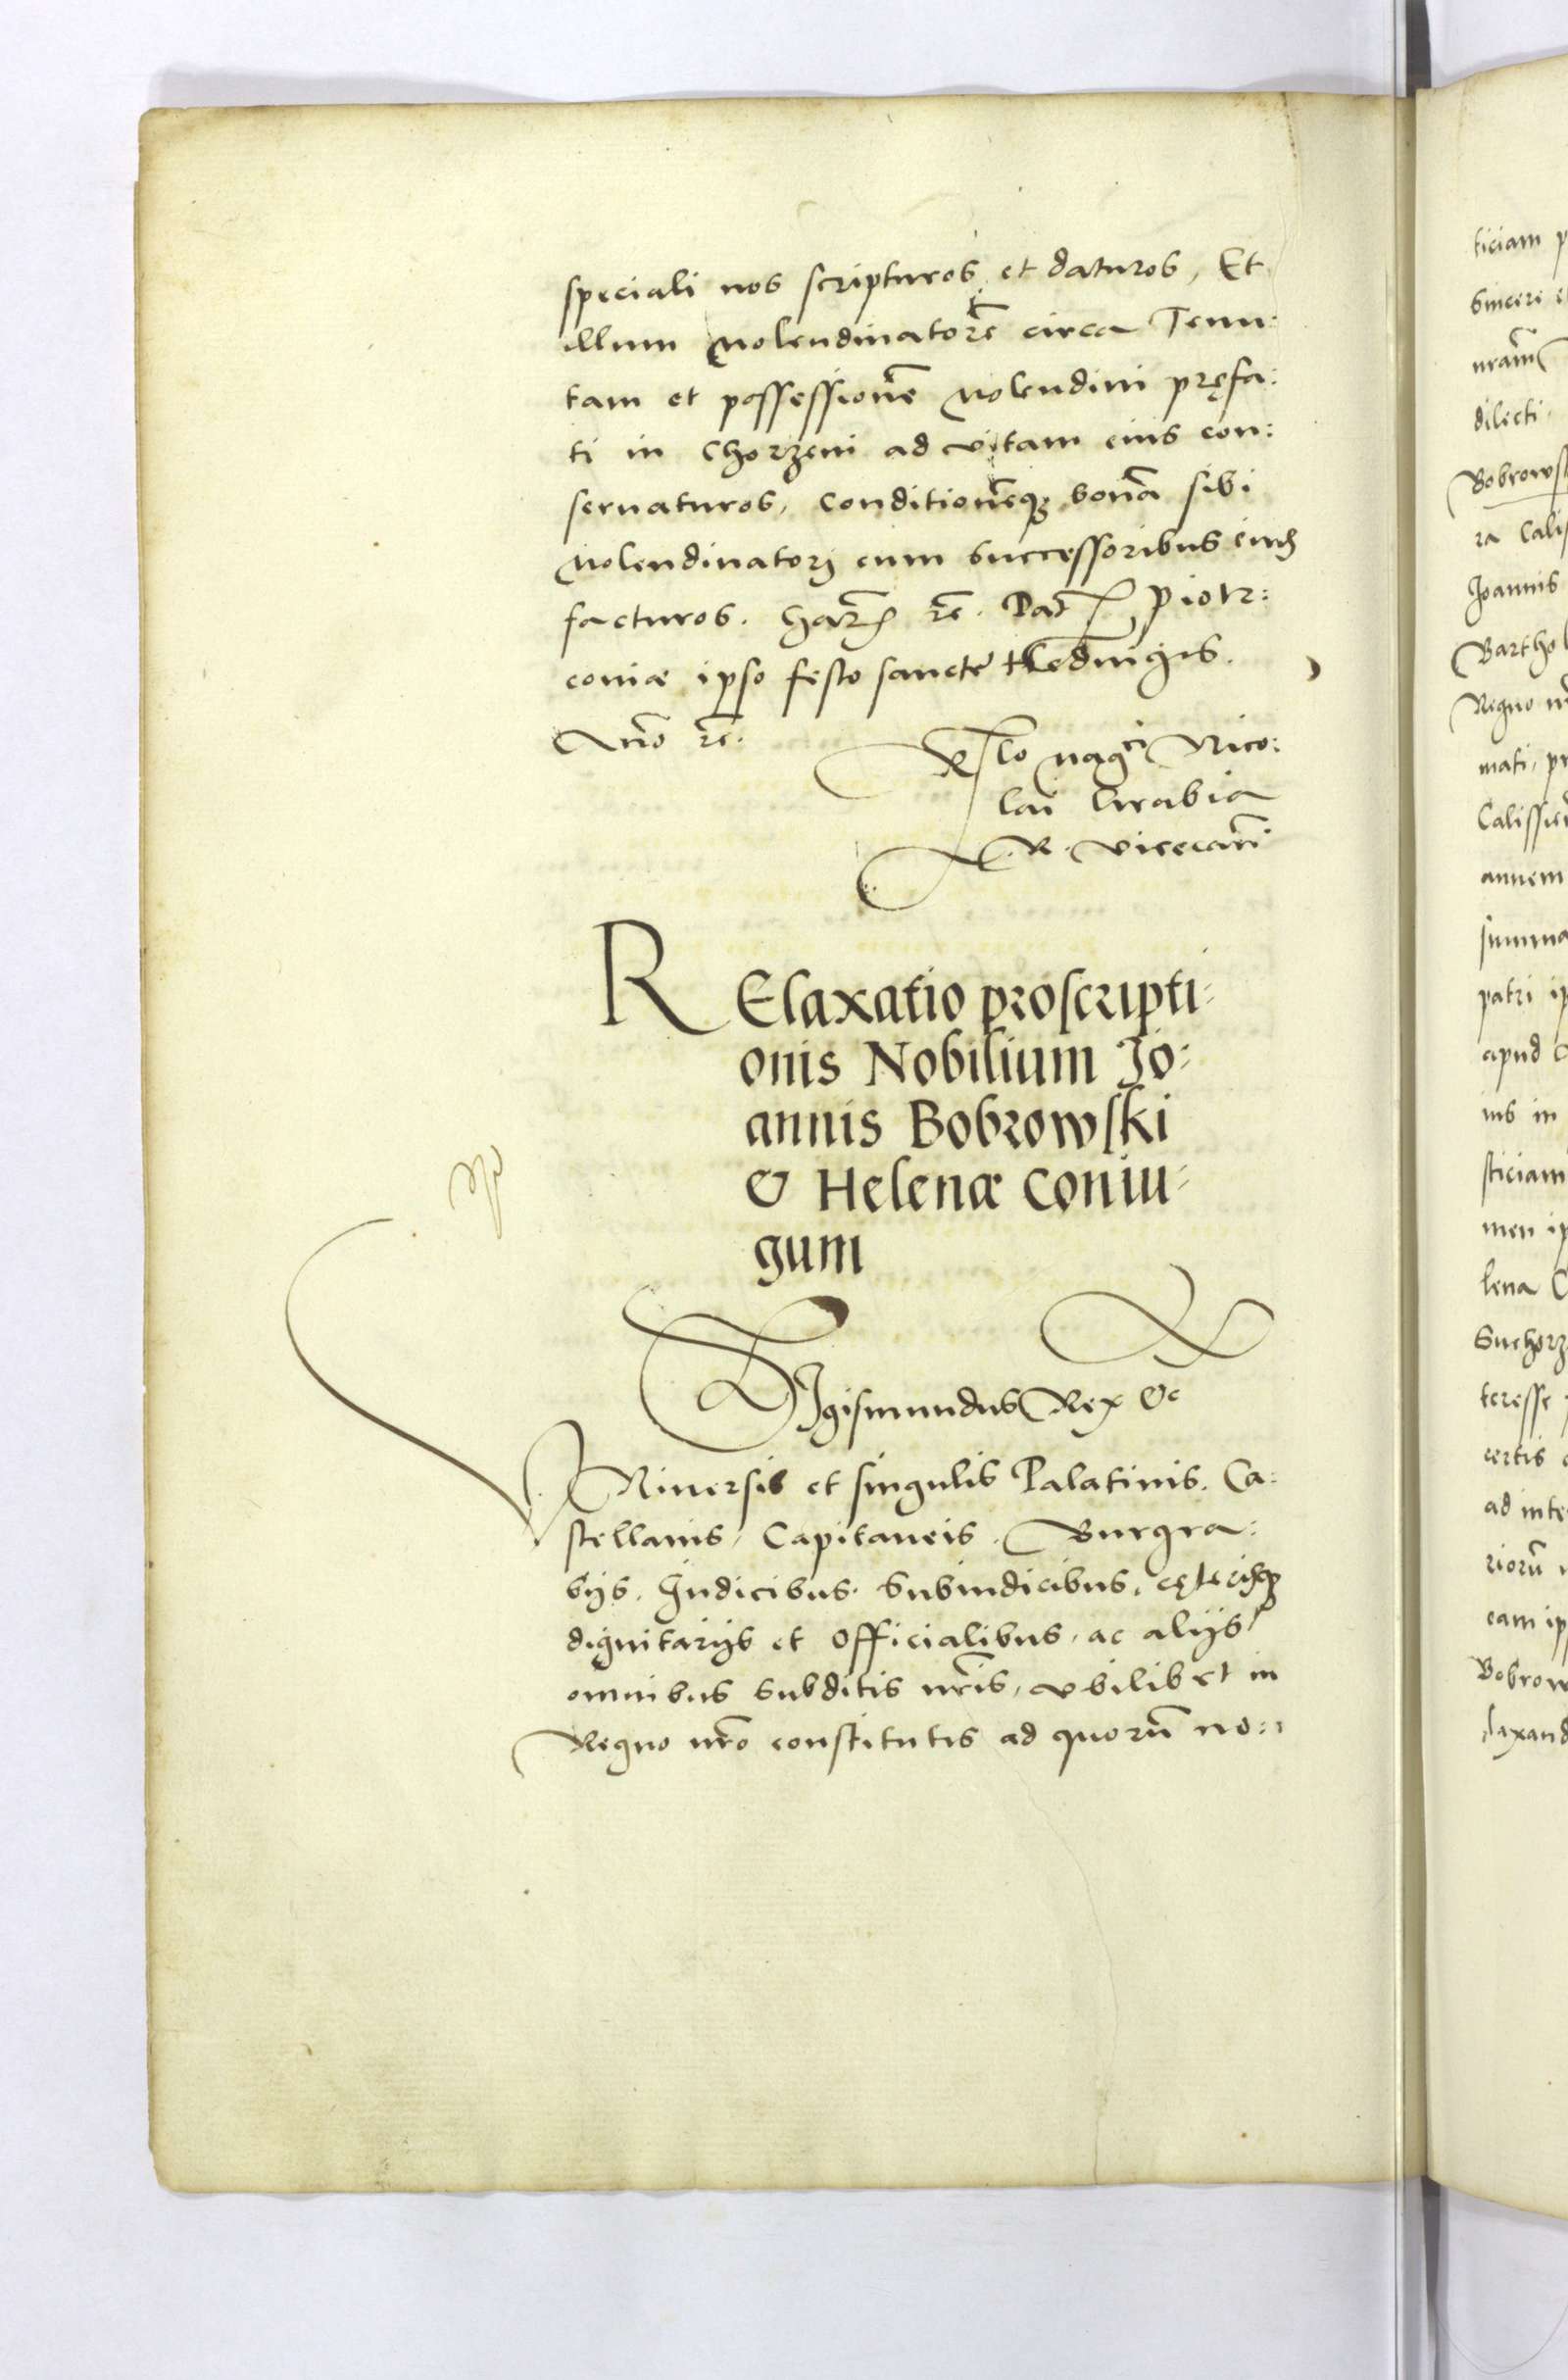 speciali nos scripturos et daturos, Et
illum molendinatorē circa Tenu:
tam et possessionē molendini pręfa:
ti in Chorzeni ad vitam eius con:
seruaturos, Conditionēq; bonā sibi
molendinatorj cum successoribus
facturos. Harꝝ rē. Dat Piotr:
coniæ ipso festo sancte Hedwigis.
Anno rē.
Rlo magci Nico:
lai Grabia
R. vicecan̄
RElaxatio proscripti:
onis Nobilium Jo:
annis Bobrowski
& Helenæ Coniu:
gum
SIgismundus Rex &c
VNiuersis et singulis Palatinis. Ca:
stellanis, Capitaneis. Burgra:
bijs. Judicibus. Subiudicibus, cęterisq;
dignitarijs et Officialibus, ac alijs
omnibus subditis nr̄is, vbilibet in
Regno nr̄o constitutis ad quorū no:
ticiam
sincere
nr̄am
dilecti
Bobrows
ra Calis
Joannis
Barthol
Regno
mati, pr
Calissien
annem
summa
patri ip
apud
ius in
sticiam
men ip
lena C
Suchorz
teresse
certis
ad inte
riorū
eam ip
Bobrow
laxand